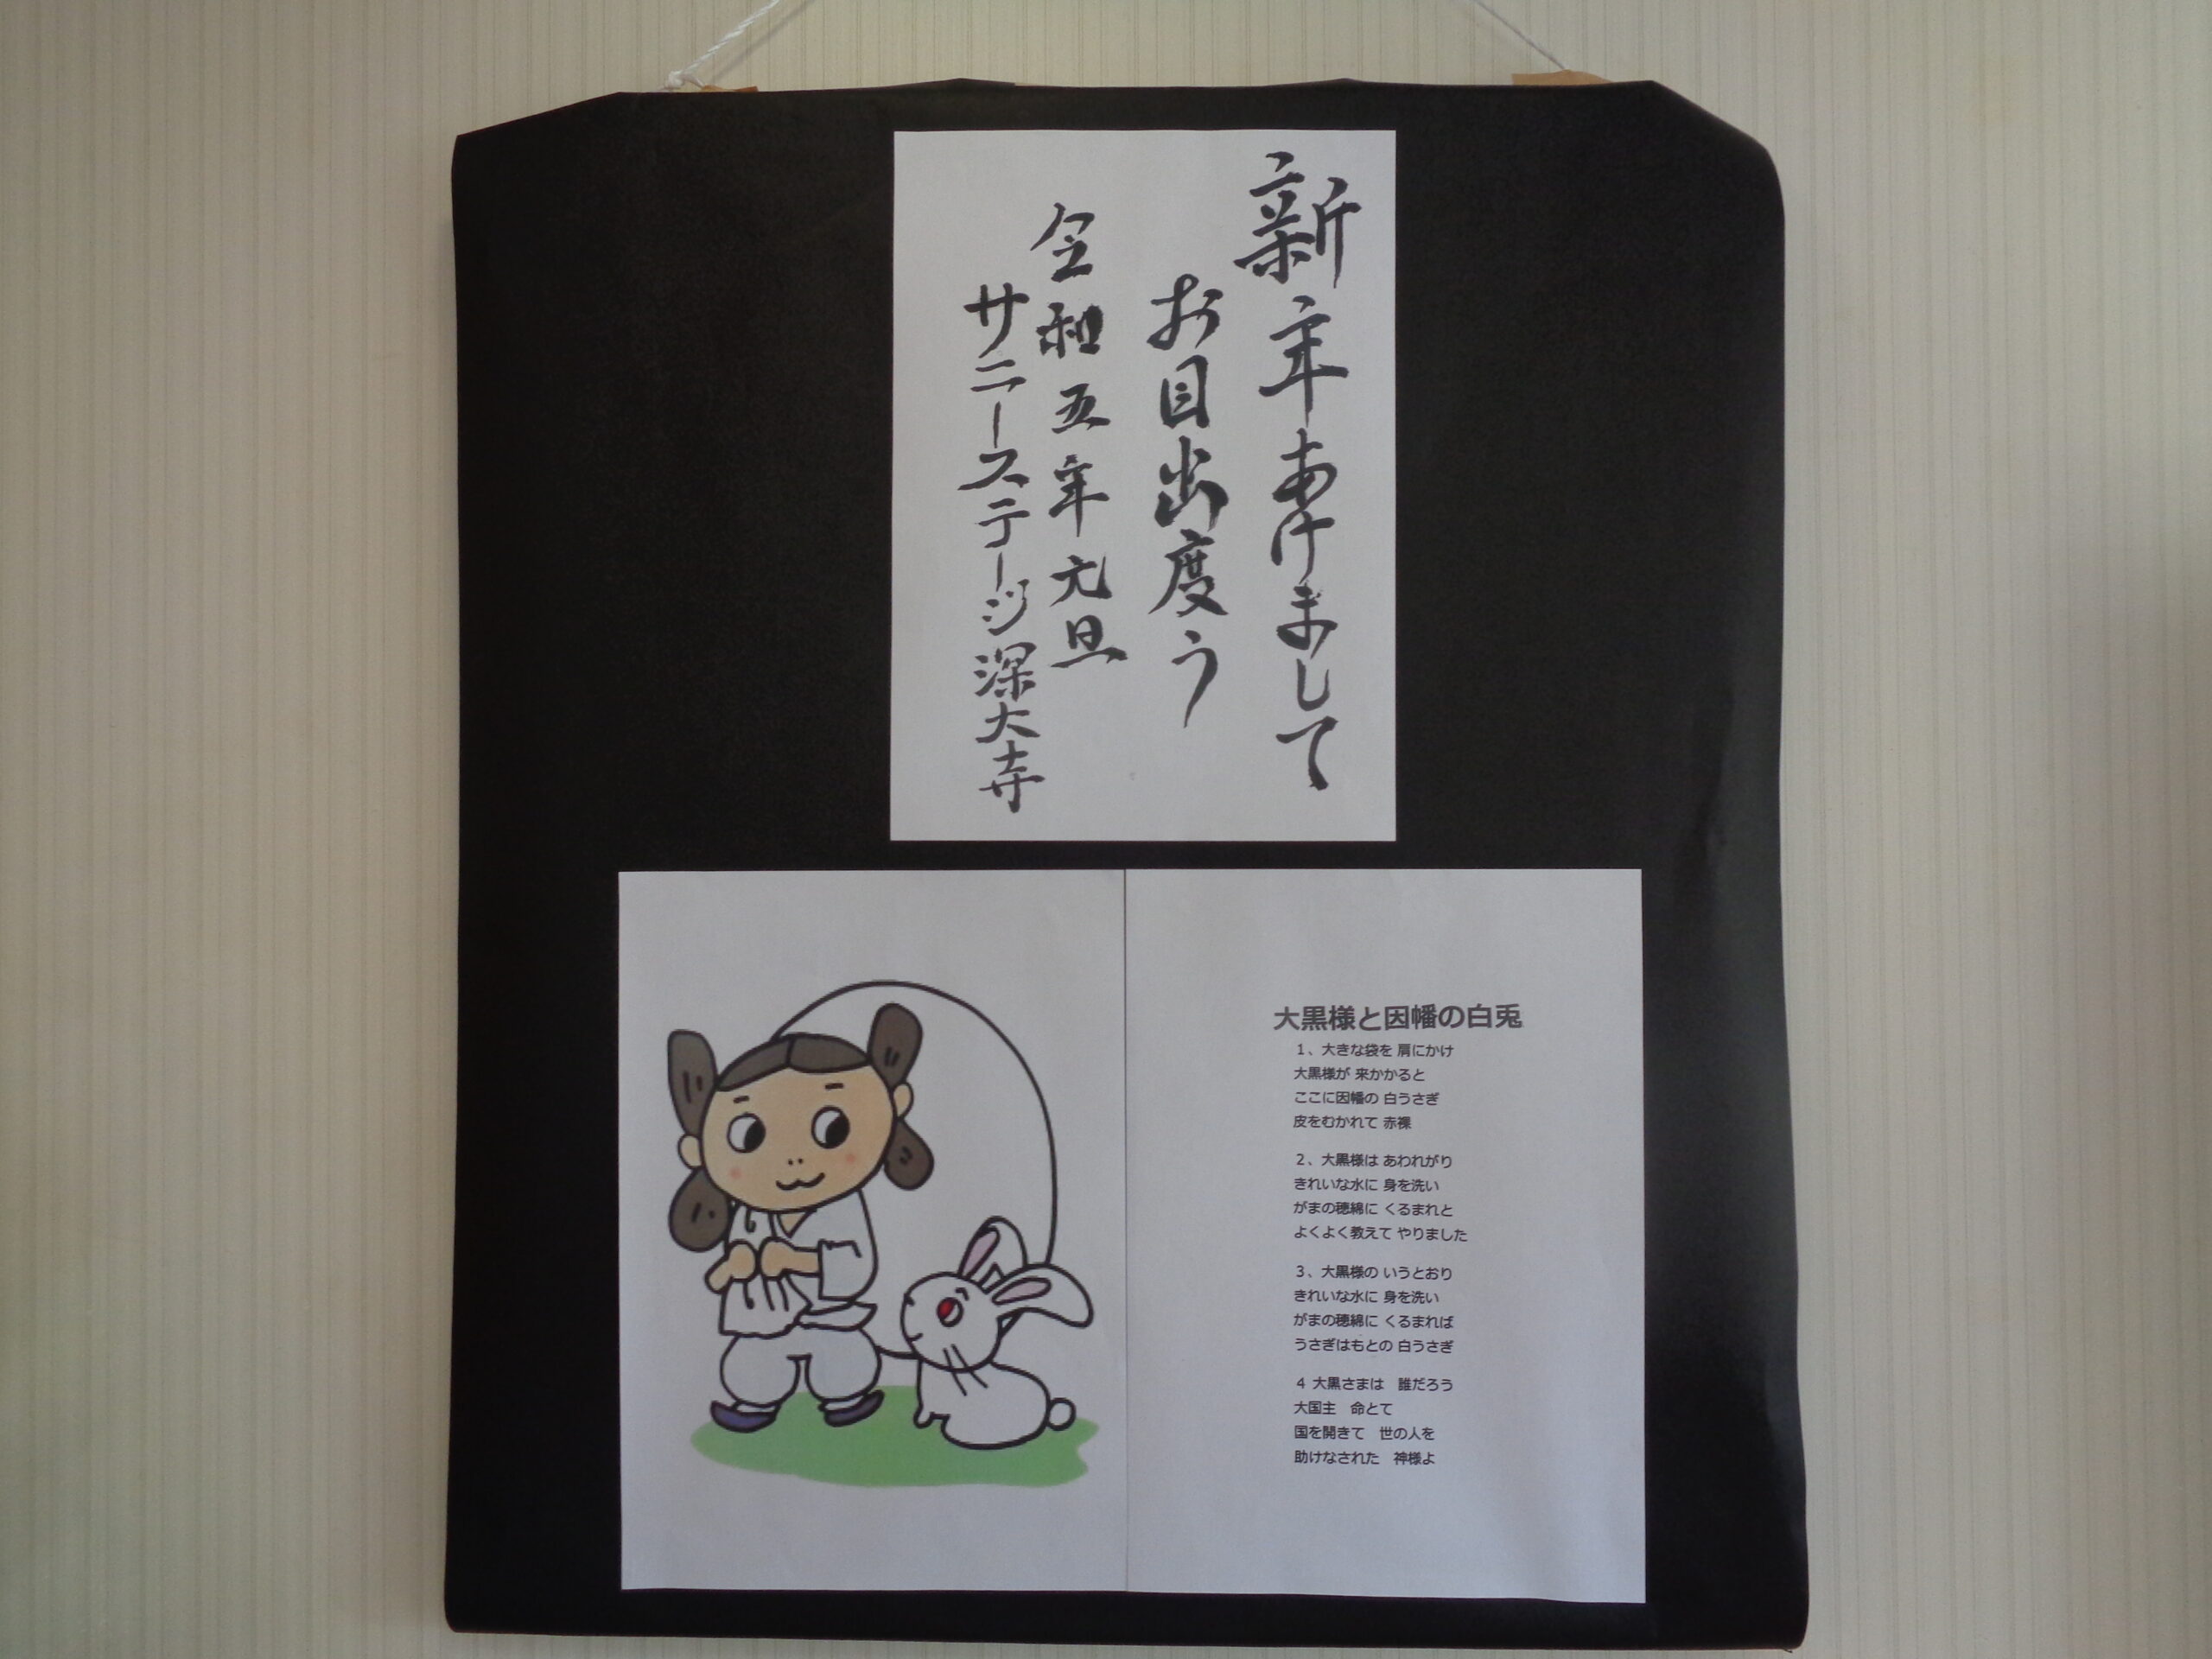 新年あけまして
お目出度う
令和五年元旦
サニーステージ深大寺
大黒様と因幡の白兎
１、大きな袋を 肩にかけ
大黒様が 来かかると
ここに因幡の 白うさぎ
皮をむかれて 赤裸
２、大黒様は あわれがり
きれいな水に 身を洗い
がまの穂綿に くるまれと
よくよく教えて やりました
３、大黒様の いうとおり
きれいな水に 身を洗い
がまの穂綿に くるまれば
うさぎはもとの 白うさぎ
４ 大黒さまは　誰だろう
大国主　命とて
国を開きて　世の人を
助けなされた　神様よ